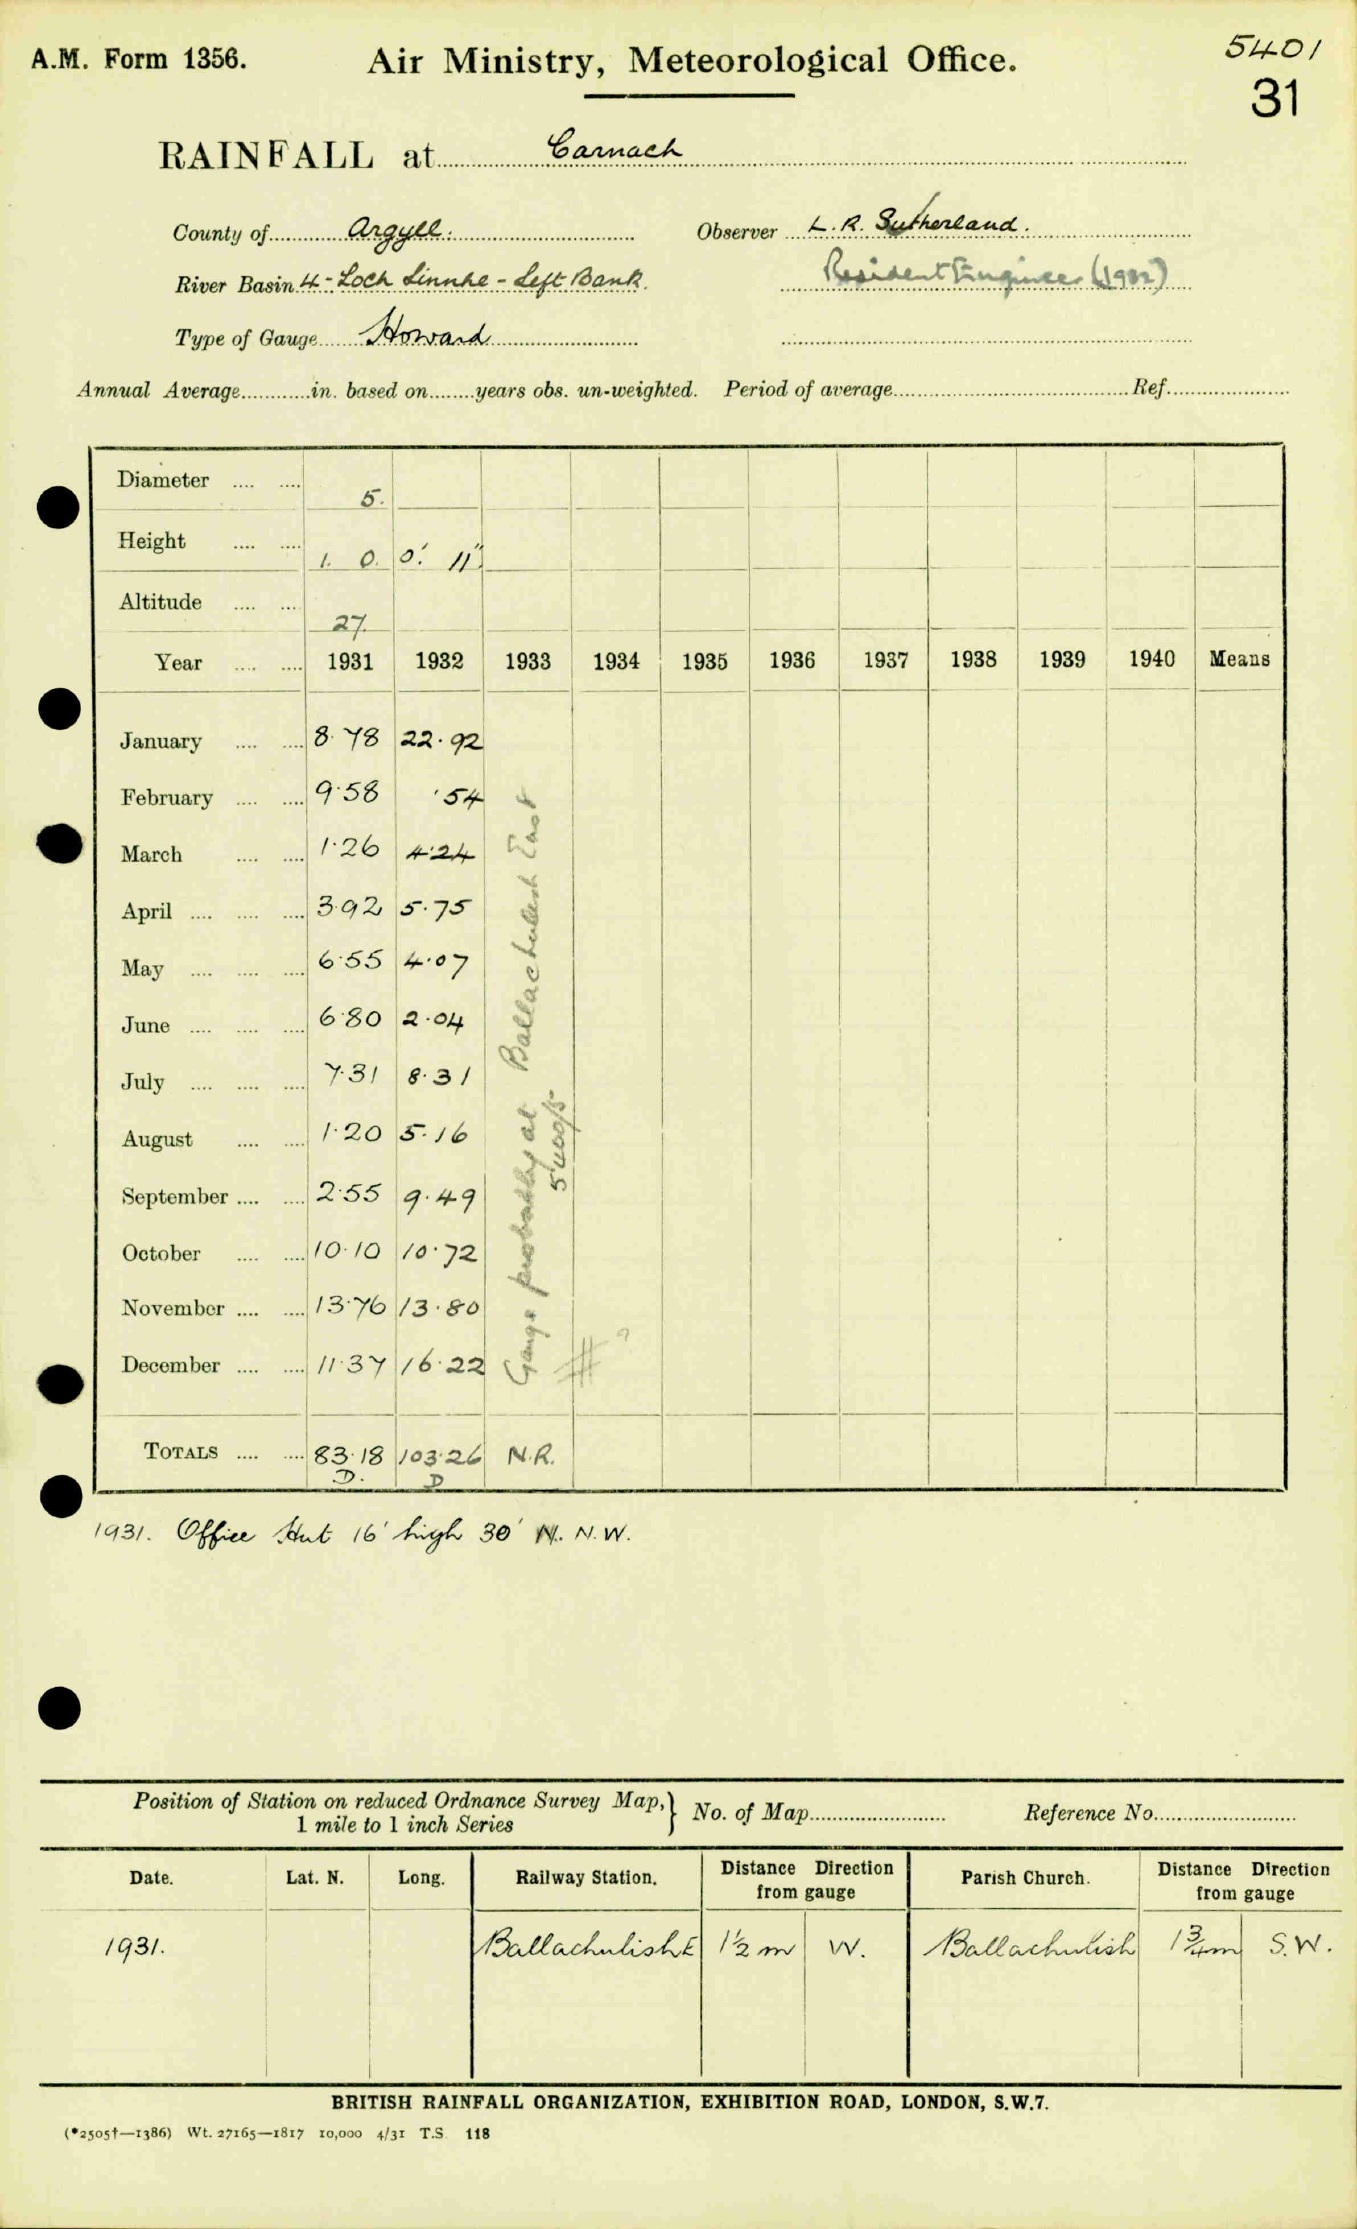 A.M. Form 1356.
Air Ministry, Meteorological Office.
5401
31
RAINFALL at Carnach
County of Argyll. Observer L. R. Sutherland.
River Basin 4 - Loch Linnhe - Left Bank. Resident Engineer (1932)
Type of Gauge Howard
Annual Average in. based on years obs. un-weighted. Period of average Ref.
Diameter 5.
Height 1. 0. 0' 11"
Altitude 27.
Year 1931 1932 1933 1934 1935 1936 1937 1938 1939 1940 Means
January 8.78 22.92
February 9.58 .54
March 1.26 4.24
April 3.92 5.75
May 6.55 4.07
June 6.80 2.04
July 7.31 8.31
August 1.20 5.16
September 2.55 9.49
October 10.10 10.72
November 13.76 13.80
December 11.37 16.22
Gauge probably at Ballachulish East
5400/5
# ?
TOTALS 83.18 103.26 N.R.
D. D
1931. Office Hut 16' high 30' N. N.W.
Position of Station on reduced Ordnance Survey Map,
1 mile to 1 inch Series
No. of Map Reference No.
Date. Lat. N. Long. Railway Station. Distance Direction from gauge Parish Church. Distance Direction from gauge
1931. Ballachulish E 1½ m W. Ballachulish 1¾ m S.W.
BRITISH RAINFALL ORGANIZATION, EXHIBITION ROAD, LONDON, S.W.7.
(*2505†—1386) Wt. 27165—1817 10,000 4/31 T.S. 118